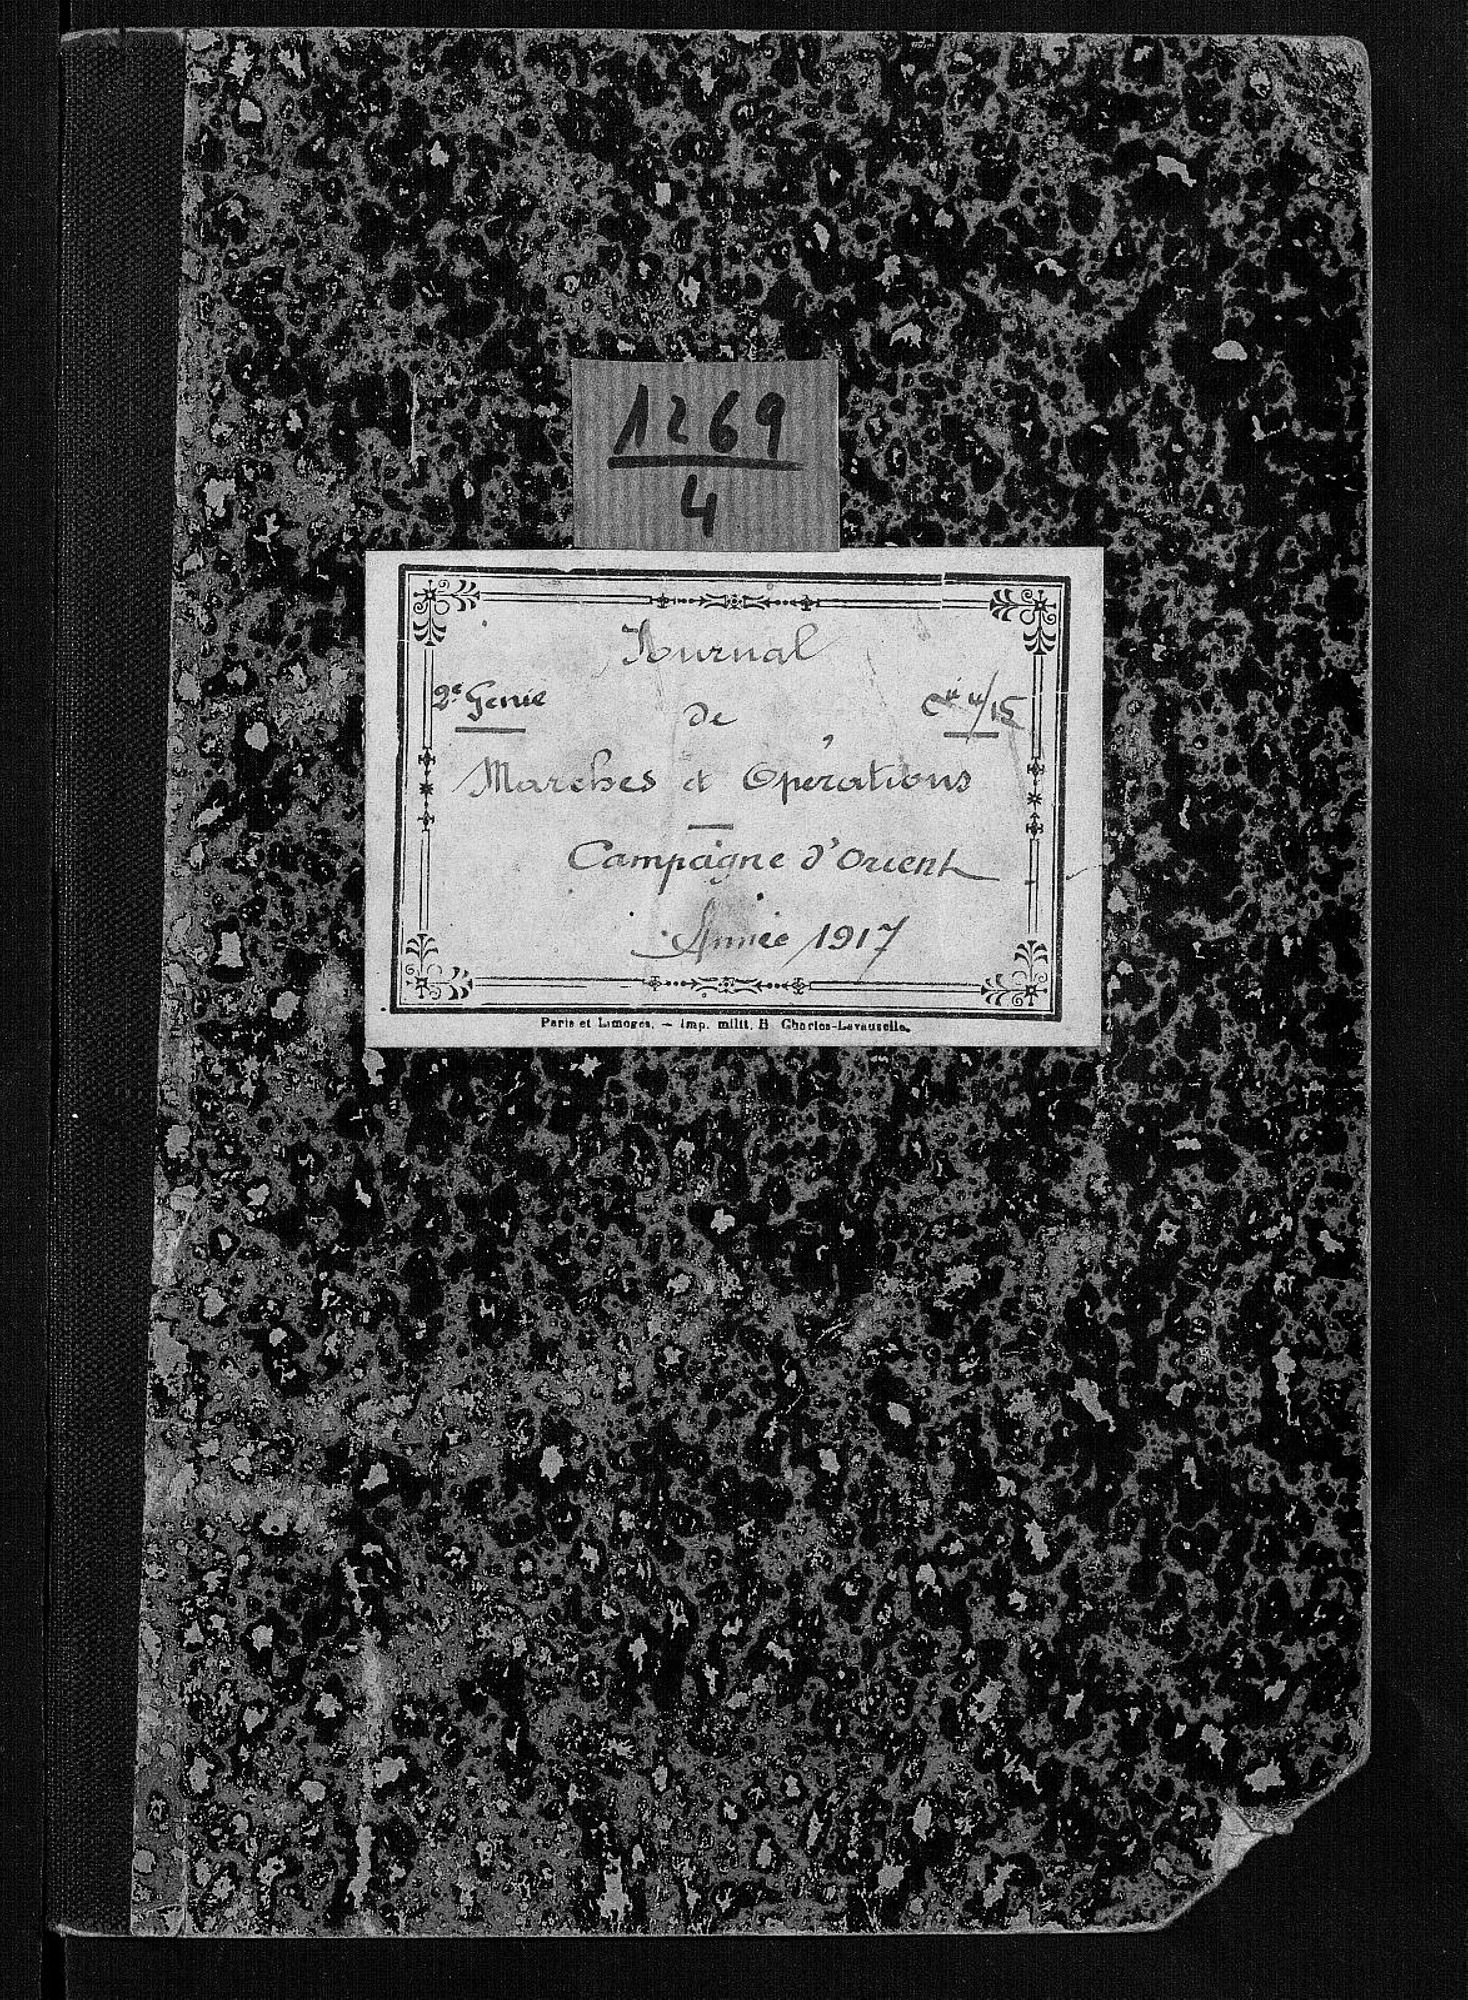 1269
4
Journal
2e Génie
de
Cie 4/15
Marches et Opérations
Campagne d'Orient
Année 1917
Paris et Limoges. — Imp. milit. H Charles-Lavauzelle.